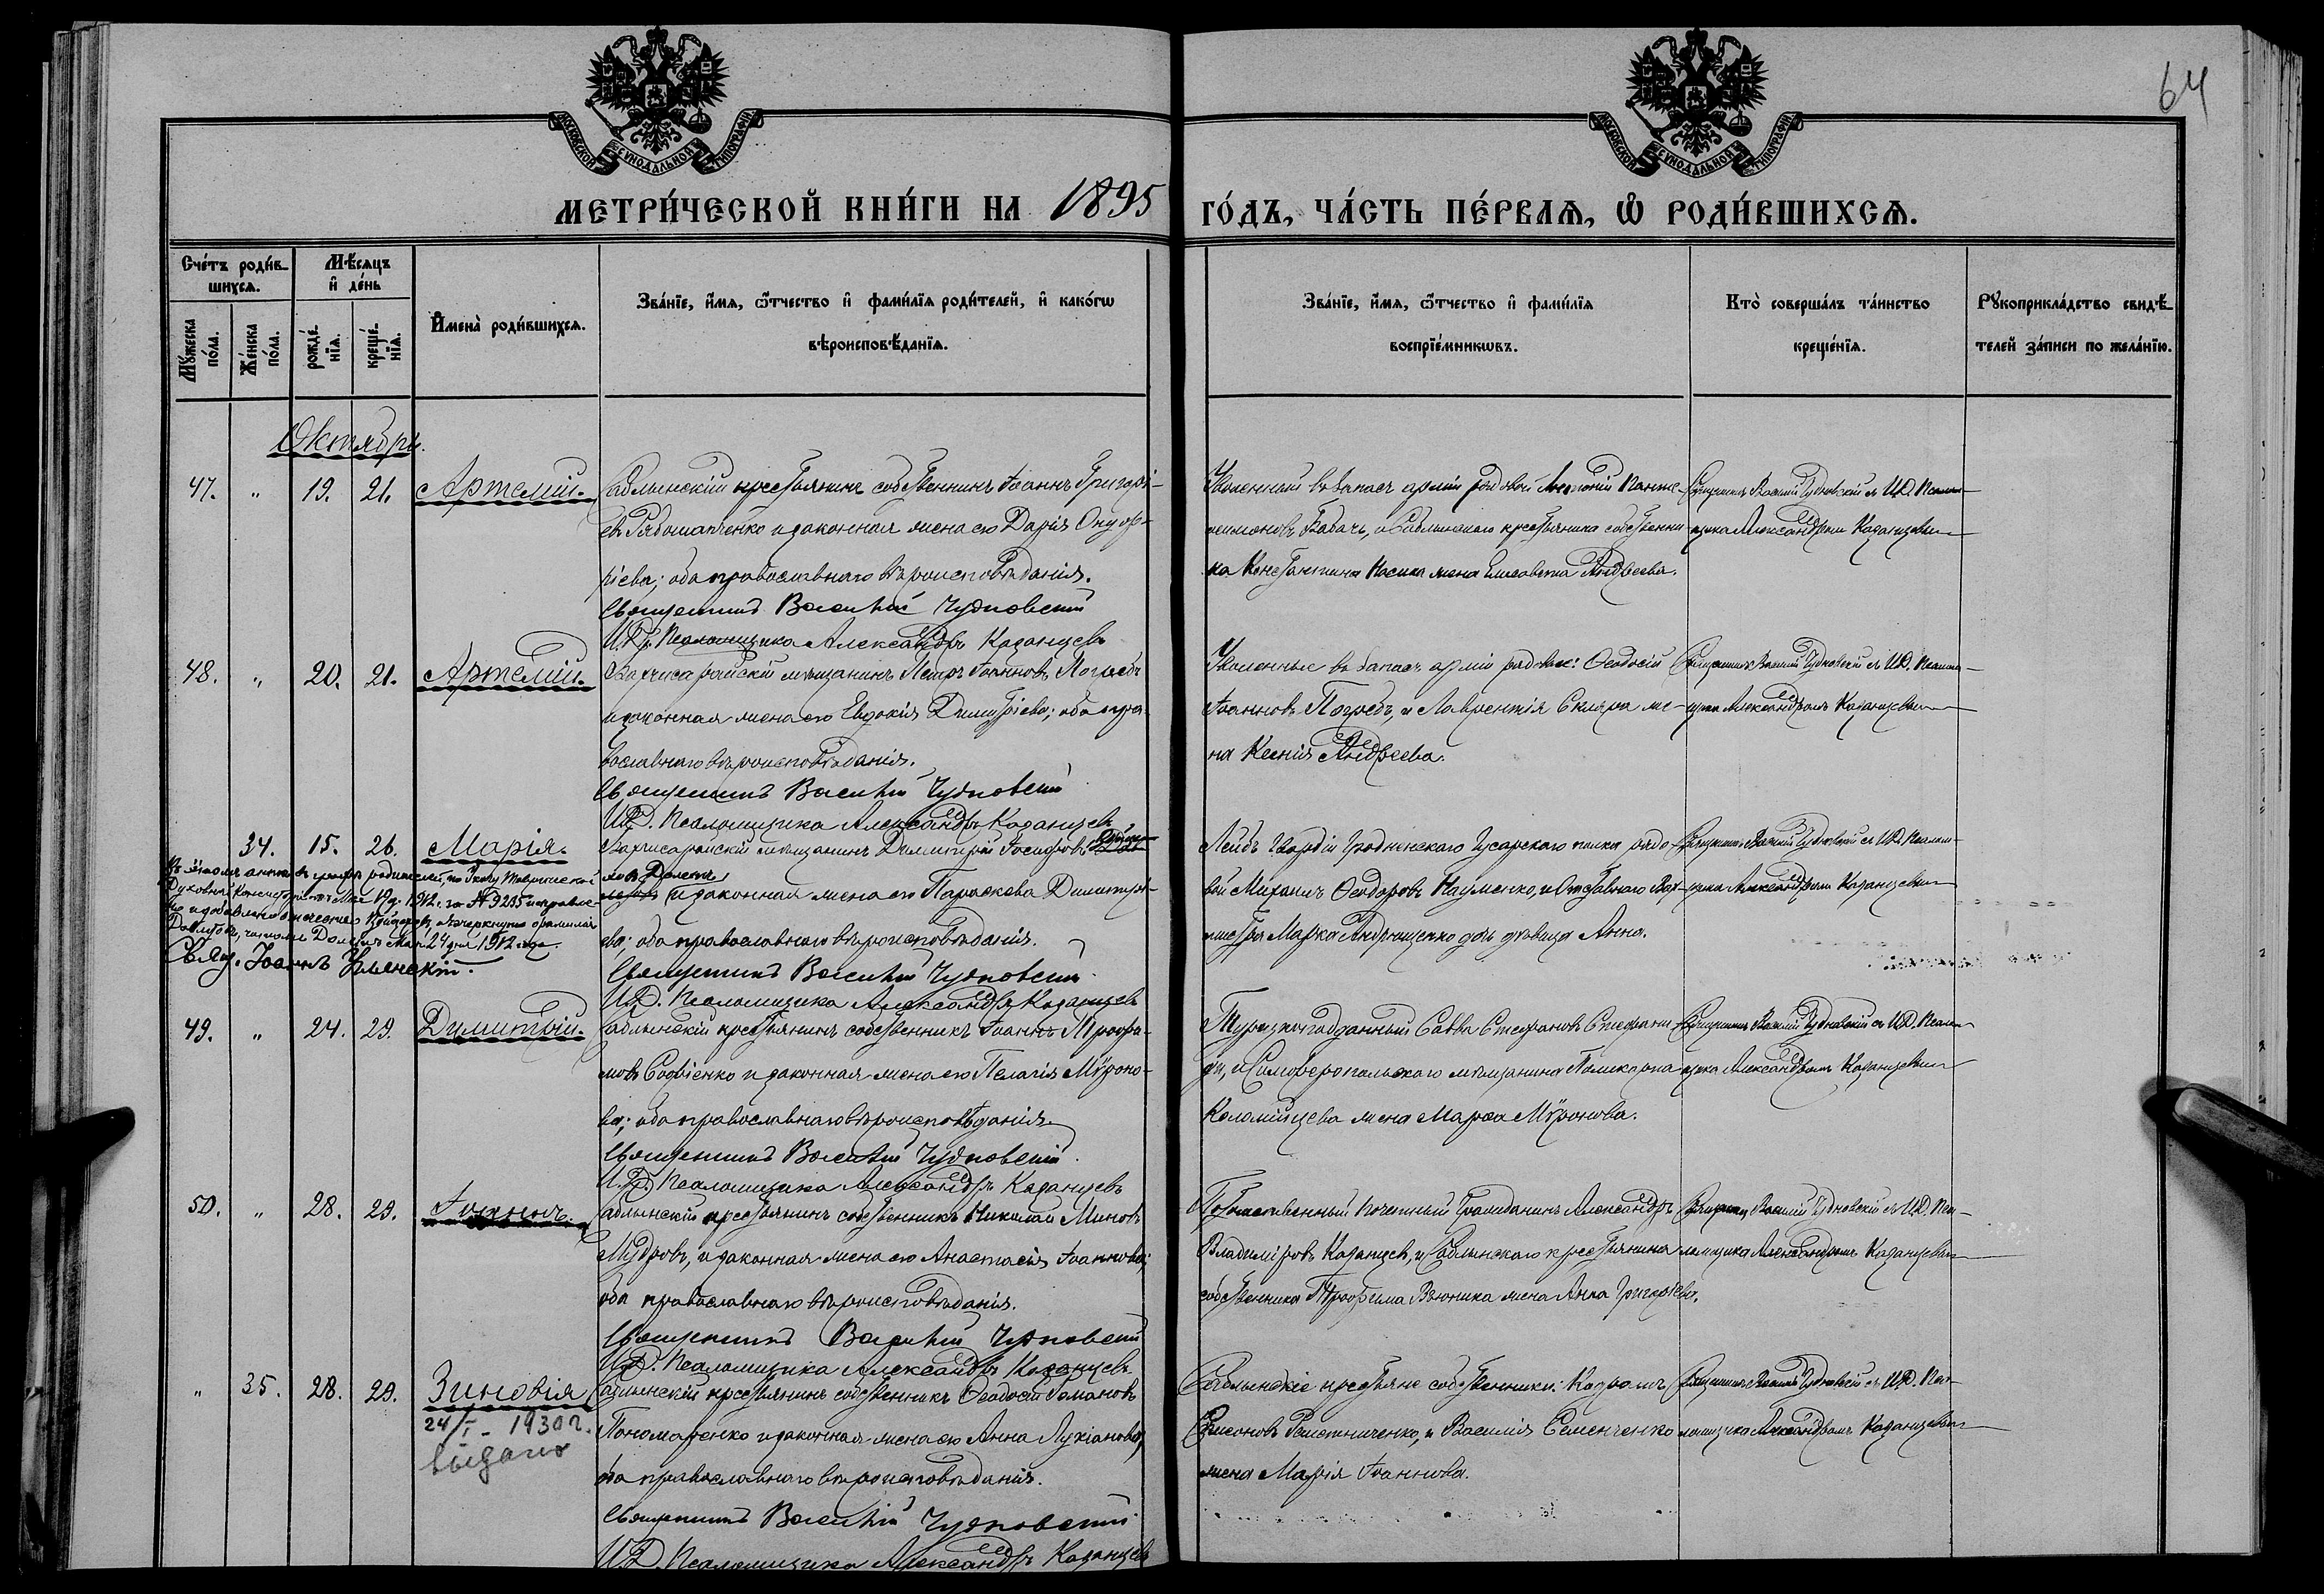 64
МОСКОВСКОЙ СУНОДАЛЬНОЙ ТИПОГРАФІИ
МОСКОВСКОЙ СУНОДАЛЬНОЙ ТИПОГРАФІИ
МЕТРИ́ЧЕСКОЙ КНИ́ГИ НА 1895 ГО́ДЪ, ЧА́СТЬ ПЕ́РВАѦ, Ѡ҆ РОДИ́ВШИХСѦ.
Сче́тъ роди́в-
шихсѧ.
Мꙋ́жеска по́ла.
Же́нска по́ла.
Мѣ́сѧцъ
и҆ де́нь
рожде́-
нїѧ.
креще́-
нїѧ.
И҆мена̀ роди́вшихсѧ.
Зва́нїе, и҆́мѧ, ѻ҆́тчество и҆ фами́лїѧ роди́телей, и҆ како́гѡ
вѣроисповѣ́данїѧ.
Зва́нїе, и҆́мѧ, ѻ҆́тчество и҆ фами́лїѧ
воспрїе́мникѡвъ.
Кто̀ соверша́лъ та́инство
креще́нїѧ.
Рꙋкоприкла́дство свидѣ́-
телей за́писи по жела́нїю.
Октябрь.
47. " 19. 21. Артемій.
Саблынскій крестьянинъ собственникъ Іоаннъ Григорі-
евъ и законная жена его Дарія Онуф-
ріева; оба православнаго вѣроисповѣданія.
Священникъ Василій Чудновскій
И.Д. Псаломщика Александръ Казанцевъ
Уволенный въ запасъ арміи рядовой Панте-
леимоновъ Бабачъ, и Саблынскаго крестьянина собственни-
ка Константина Носика жена Елисавета Андреева.
Священникъ Василій Чудновскій съ И.Д. Псалом-
щика Александромъ Казанцевымъ
48. " 20. 21. Артемій.
Бахчисарайскій мѣщанинъ Петръ Іоанновъ Погребъ
и законная жена его Евдокія Димитріева; оба пра-
вославнаго вѣроисповѣданія.
Священникъ Василій Чудновскій
И.Д. Псаломщика Александръ Казанцевъ
Уволенные въ запасъ арміи рядовые: Ѳеодосій
Іоанновъ Погребъ, и Лаврентія Скляра же-
на Ксенія Андреева.
Священникъ Василій Чудновскій съ И.Д. Псалом-
щика Александромъ Казанцевымъ
34. 15. 26. Марія.
Бахчисарайскій мѣщанинъ Димитрій Іосифовъ
и законная жена его Параскева Димитрі-
ева; оба православнаго вѣроисповѣданія.
Священникъ Василій Чудновскій
И.Д. Псаломщика Александръ Казанцевъ
Лейбъ Гвардіи Гродненскаго Гусарскаго полка рядо-
вой Михаилъ Ѳеодоровъ Науменко, и Отставнаго Вах-
мистра Марка Андрющенко дочь дѣвица Анна.
Священникъ Василій Чудновскій съ И.Д. Псалом-
щика Александромъ Казанцевымъ
Въ этомъ актѣ въ графѣ родителей, по Указу Таврической
Духовной Консисторіи отъ Мая 12 д. 1912 г. за № 9235 исправле-
мая 24 дня 1912 года.
Свящ. Іоаннъ
49. " 24. 29. Димитрій.
Саблынскій крестьянинъ собственникъ Іоаннъ Трофи-
мовъ Совгіенко и законная жена его Пелагія Мѵроно-
ва; оба православнаго вѣроисповѣданія
Священникъ Василій Чудновскій
И.Д. Псаломщика Александръ Казанцевъ
Турецкоподданный Савва Стефановъ Стефани-
ди, и Симферопольскаго мѣщанина Поликарпа
Коломійцева жена Марѳа Мѵронова.
Священникъ Василій Чудновскій съ И.Д. Псалом-
щика Александромъ Казанцевымъ
50. " 28. 29. Іоаннъ.
Саблынскій крестьянинъ собственникъ Николай Миновъ
Мудровъ, и законная жена его Анастасія Іоаннова;
оба православнаго вѣроисповѣданія.
Священникъ Василій Чудновскій
И.Д. Псаломщика Александръ Казанцевъ
Потомственный Почетный Гражданинъ Александръ
Владиміровъ Казанцевъ, и Саблынскаго крестьянина
собственника Трофима Вьюника жена Анна Григорьева.
Священникъ Василій Чудновскій съ И.Д. Пса-
ломщика Александромъ Казанцевымъ
" 35. 28. 29. Зиновія
24/I - 1930 г.
Саблынскій крестьянинъ собственникъ Ѳеодосій Романовъ
Пономаренко и законная жена его Анна Лукіанова;
оба православнаго вѣроисповѣданія.
Священникъ Василій Чудновскій
И.Д. Псаломщика Александръ Казанцевъ
Саблынскіе крестьяне собственники: Карпъ
Симеоновъ Решетниченко, и Василія Семенченко
жена Марія Іоаннова.
Священникъ Василій Чудновскій съ И.Д. Пса-
ломщика Александромъ Казанцевымъ